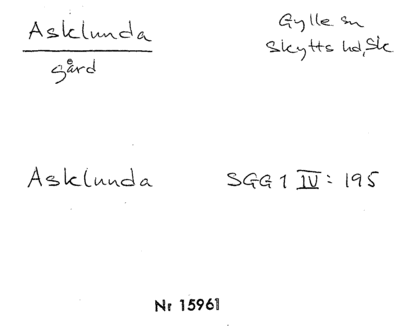 Asklunda
gård
Gylle sn
Skytts hd, Sk
Asklunda
SGG 1 IV: 195
Nr 15961